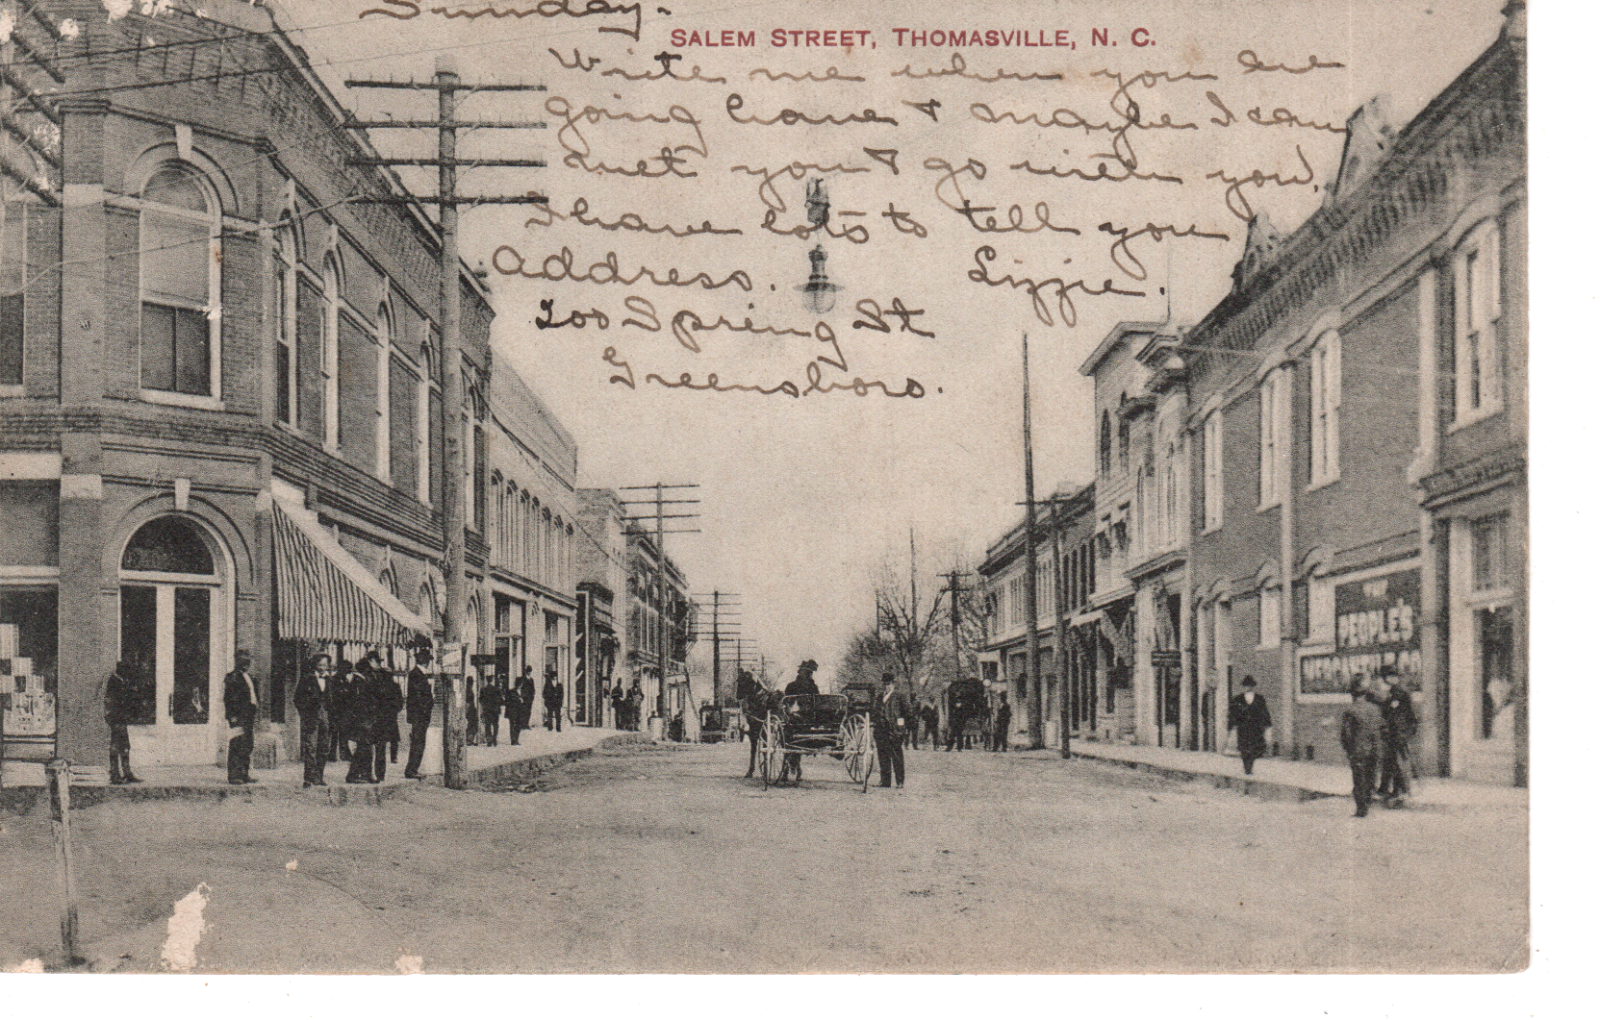 Sunday.
SALEM STREET, THOMASVILLE, N. C.
Write me when you are
going home & maybe I can
met you & go with you.
I have lots to tell you
Address. Lizzie.
200 Spring St
Greensboro.
THE
PEOPLE'S
MERCANTILE CO